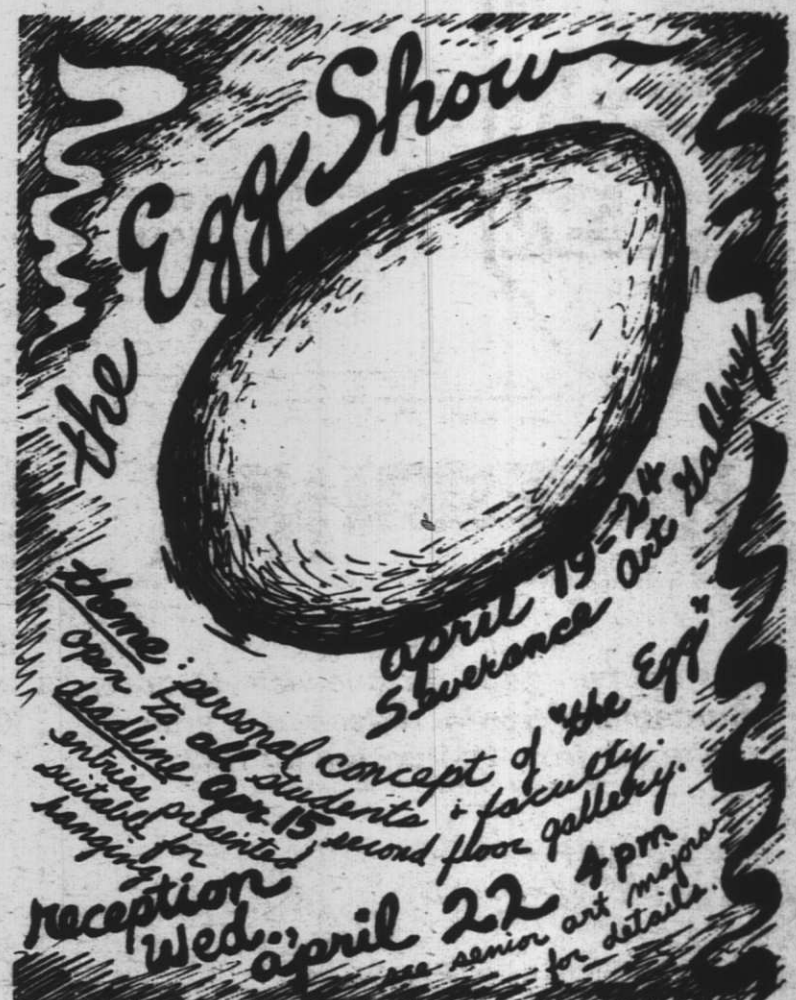 the Egg Show
april 19-24
Severance Art Gallery
theme: personal concept of "the Egg"
open to all students & faculty.
deadline apr 15 second floor gallery.
entries presented
suitable for
hanging
reception
Wed., april 22 4 pm
see senior art majors
for details.